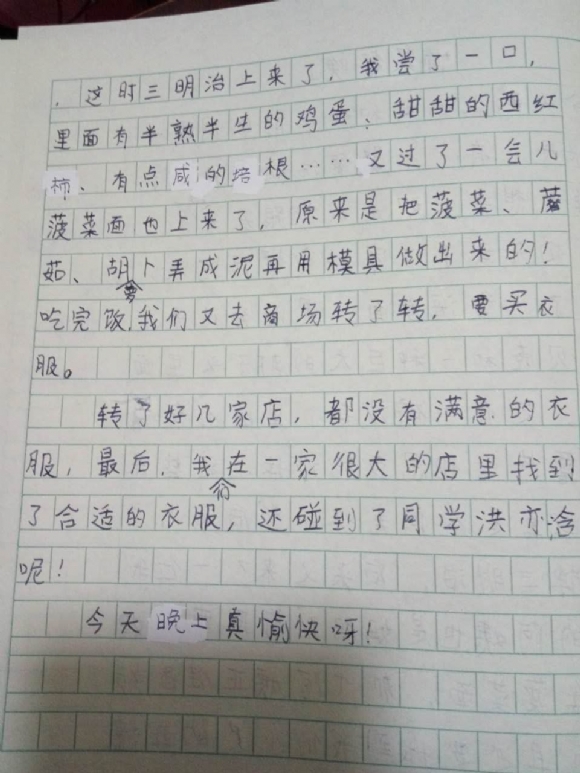 ，这时三明治上来了，我尝了一口，
里面有半熟半生的鸡蛋、甜甜的西红
柿、有点咸的培根……又过了一会儿
菠菜面也上来了，原来是把菠菜、蘑
菇、胡萝卜弄成泥再用模具做出来的！
吃完饭，我们又去商场转了转，要买衣
服。
转了好几家店，都没有满意的衣
服，最后，我们在一家很大的店里找到
了合适的衣服，还碰到了同学洪亦浛
呢！
今天晚上真愉快呀！